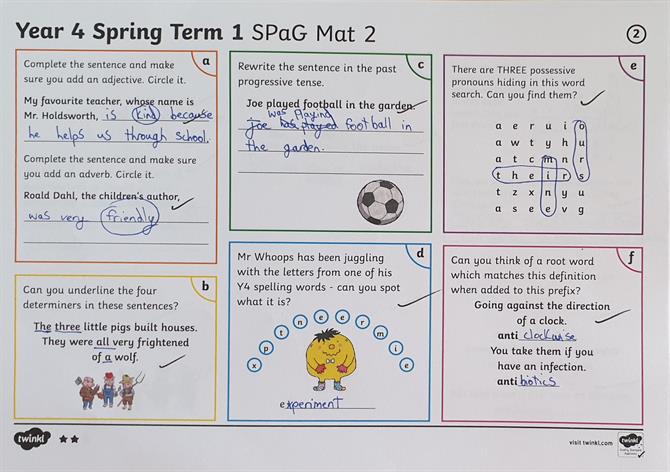 Year 4 Spring Term 1 SPaG Mat 2
2
a
Complete the sentence and make
sure you add an adjective. Circle it.
My favourite teacher, whose name is
Mr. Holdsworth, is kind because
he helps us through school.
Complete the sentence and make sure
you add an adverb. Circle it.
Roald Dahl, the children's author,
was very friendly
b
Can you underline the four
determiners in these sentences?
The three little pigs built houses.
They were all very frightened
of a wolf.
c
Rewrite the sentence in the past
progressive tense.
Joe played football in the garden.
was playing
Joe has played football in
the garden.
d
Mr Whoops has been juggling
with the letters from one of his
Y4 spelling words - can you spot
what it is?
x p t n e e r m i e
experiment
e
There are THREE possessive
pronouns hiding in this word
search. Can you find them?
a e r u i o
a w t y h u
a t c m n r
t h e i r s
t z x n y u
a s e e v g
f
Can you think of a root word
which matches this definition
when added to this prefix?
Going against the direction
of a clock.
anti clockwise
You take them if you
have an infection.
antibiotics
twinkl
visit twinkl.com
twinkl